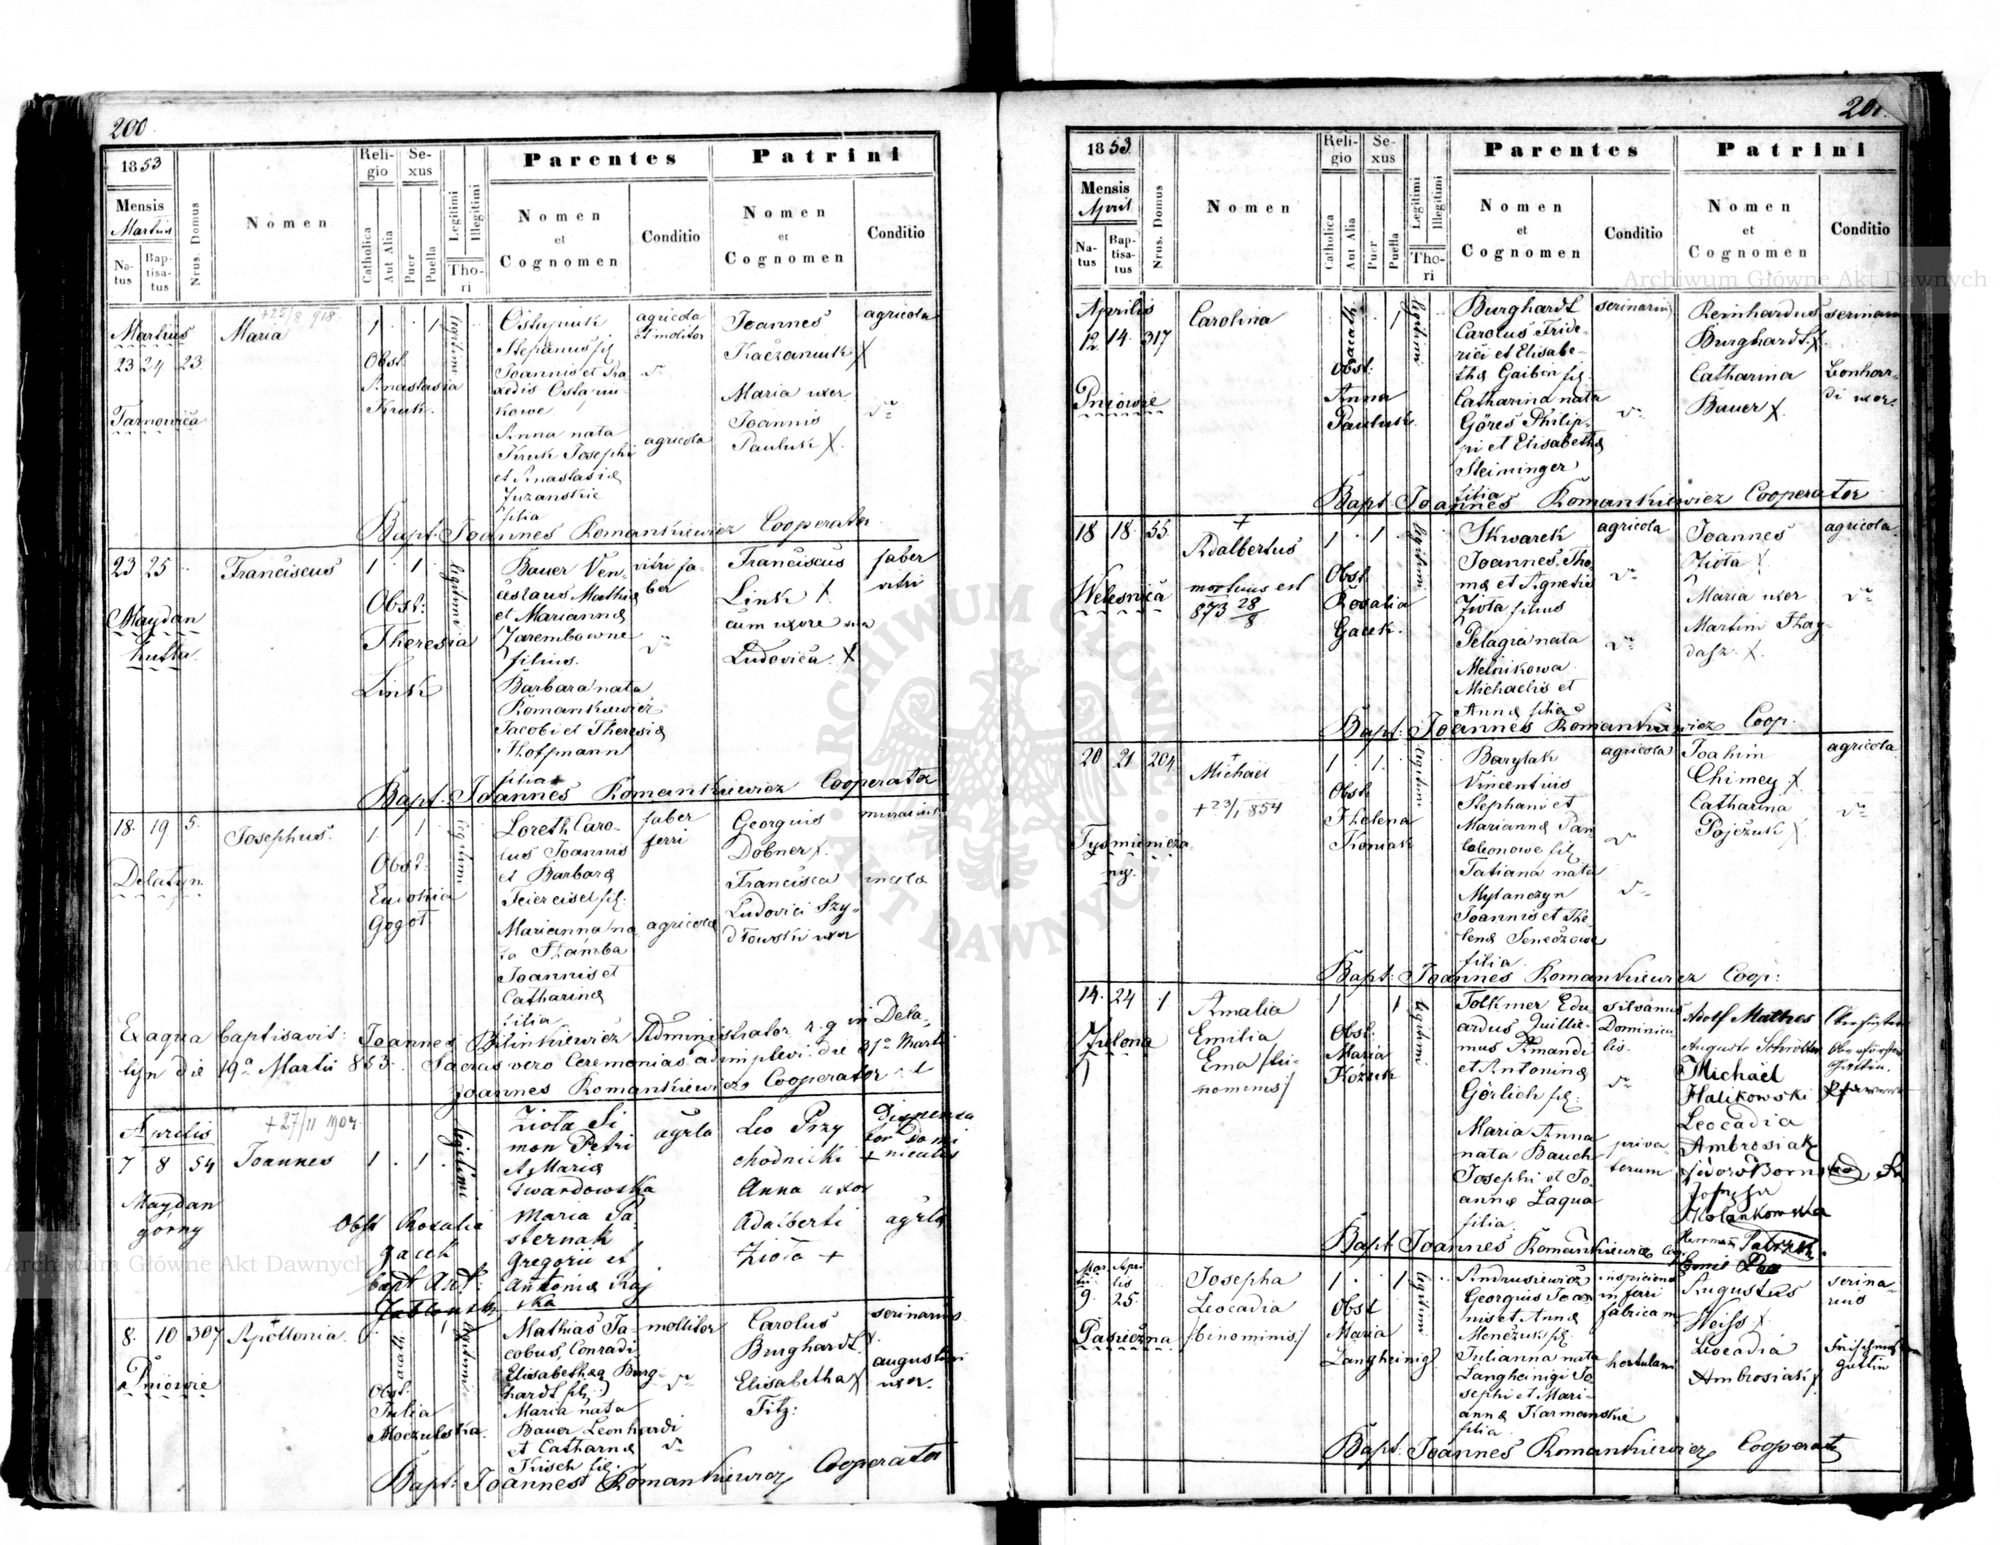 200
1853
Mensis
Martius
Natus
Baptisatus
Nrus. Domus
Nomen
Religio
Catholica
Aut Alia
Sexus
Puer
Puella
Legitimi
Illegitimi
Thori
Parentes
Nomen
et
Cognomen
Conditio
Patrini
Nomen
et
Cognomen
Conditio
Martius
23 24 23
Tarnowica
+25/8 918.
Maria
1 . . 1
Obst.
Anastasia
Kruk.
legitimi
Ostapiuk
Stepanus fil
Joannis et Pa
Anna nata
Kruk Josephi
et Anastasiæ
filia
agricola
et molitor
agricola
Joannes
Kaczaniuk X
Maria uxor
Joannis
Pauluk X.
agricola
Bapt. Joannes Romankiewicz Cooperator
23 25
Maydan
hutta
Franciscus
1 . 1 .
Obst:
Theresia
Link
legitimi
Bauer Ven-
ceslaus Mathiæ
et Mariannæ
Zarembowne
filius.
Barbara nata
Romankiewicz
Jacobi et Theresiæ
Hoffmann
filia
vitri fa-
ber
Franciscus
Link X
cum uxore sua
Ludovica X
faber
vitri
Bapt: Joannes Romankiewicz Cooperator
18. 19 5.
Delatyn
Josephus.
1 . 1
Obst:
Eudokia
Gogot
legitimi
Loreth Caro-
lus Joannis
et Barbaræ
fil.
Marianna na
ta
Joannis et
Catharinæ
filia
faber
ferri
agricola
Georgius
Dobner X.
Francisca
Ludovici Szy-
dłowski uxor
Ex aqua baptisavit: Joannes Bilinkiewicz Administrator r. g in Dela-
tyn die 19a Martii 853. Sacras vero Ceremonias adimplevi die 31a Martii
Joannes Romankiewicz Cooperator
Aprilis
7 8 54
Maydan
górny
+27/11 1904.
Joannes
1 . 1 .
Obst Rosalia
Gacek
bapt Ant:
Jabłoński
legitimi
Ziota Si
mon Petri
et Mariæ
Twardowska
Maria Pa
sternak
Gregorii et
Antoniæ Raj
ska
agrla
Leo Przy
chodnicki +
Anna uxor
Adalberti
Ziota +
Dispensa
tor Domi
nicalis
agrla
8. 10 307
Pniowie
Apollonia
Obst:
Julia
Moczulska.
legitimi
Mathias Ja-
cobus, Conradi
Elisabethæ Burg-
hardt fil.
Maria nata
Bauer Leonhardi
et Catharinæ
Kisch fil:
mollitor
Carolus
Burghardt
Elisabetha X
Fitz:
serinarius
augustini
uxor.
Bapt: Joannes Romankiewicz Cooperator
201.
1853
Mensis
April
Natus
Baptisatus
Nrus. Domus
Nomen
Religio
Catholica
Aut Alia
Sexus
Puer
Puella
Legitimi
Illegitimi
Thori
Parentes
Nomen
et
Cognomen
Conditio
Patrini
Nomen
et
Cognomen
Conditio
Aprilis
12. 14. 317
Pniowie
Carolina
Obst:
Anna
Pauluk.
legitimi
Burghardt
Carolus Fride-
rici et Elisabe-
thæ Gaibin fil
Catharina nata
Göres Philip-
pi et Elisabethæ
Steininger
filia
serinarius
Reinhardus
Burghardt X.
Catharina
Bauer X.
serinarius
Leonhar-
di uxor.
Bapt. Joannes Romankiewicz Cooperator
18 18 55
Welesnica
+
Adalbertus
mortuus est
873 28/8
1 . 1
Obst
Rosalia
Gacek.
legitimi
Skwarek
Joannes, Tho-
mæ et Agnetis
Ziota filius
Pelagia nata
Melnikowa
Michaelis et
Annæ filia
agricola
Joannes
Ziota
Maria uxor
Martini Hay-
dasz. X.
agricola.
Bapt: Joannes Romankiewicz Coop.
20 21 204
Tysmienicza-
ny.
+
Michael
+23/1 854
1 . 1 .
Obst
Helena
Koniak
legitimi
Barylak
Vincentius
Stephani et
Mariannæ Pan
teleonowe fil
Tatiana nata
Mylanczyn
Joannis et He
lenæ Seneczowe
filia.
agricola
Joahim
Chimey. X
Catharina
Pojczuk X
agricola
Bapt: Joannes Romankiewicz Coop:
14. 24 1
Zielona
Amalia
Emilia
Ema /tri
nominis/
1 . . 1
Obst:
Maria
Kozuk
legitimi
Tolkmer Edu
ardus Quillie-
mus Amandi
et Antoninæ
Görlich fil:
Maria Anna
nata Bauch
Josephi et Jo-
annæ Laqua
filia.
silvanus
Dominica-
lis.
priva
terum
Adolf Mathes
Auguste Schrötter
Michael
Halikowski
Leocadia
Ambrosiak
Kolankowska
Oberförster
Oberförster
Gattin
Pfarrer
Bapt Joannes Romankiewicz Coop.
Mar. Apri-
tii lis
9. 25.
Pasieczna
Josepha
Leocadia
/binominis/
1 . . 1
Obst
Maria
Langheinig
legitimi
Andrusiewicz
Georgius Joan
nis et Annæ
Menczuk fil.
Julianna nata
Langheinigi Jo
sephi et Mari-
annæ Karmanskie
filia
inspiciens
in ferri
fabricam
hortulani
Augustus
Weiss X
Leocadia
Ambrosiak X
serina-
rius
Gattin
Bapt: Joannes Romankiewicz Cooperator
Archiwum Główne Akt Dawnych
ARCHIWUM GŁÓWNE AKT DAWNYCH
Archiwum Główne Akt Dawnych